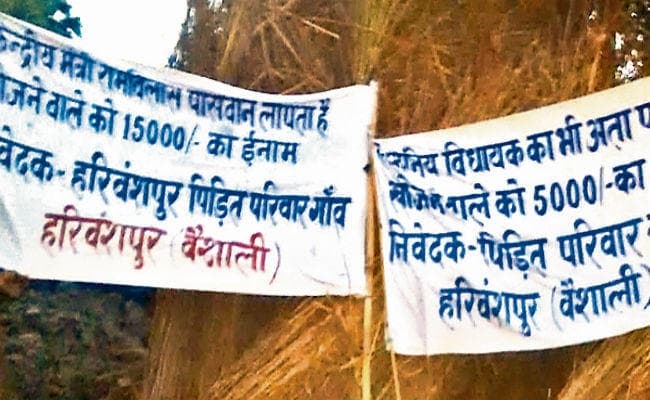 केन्द्रीय मंत्री रामविलास पासवान लापता हैं
खोजने वाले को 15000/- का ईनाम
निवेदक- हरिवंशपुर पिड़ित परिवार गाँव
हरिवंशपुर (वैशाली)
विधायक का भी अता
खोजने वाले को 5000/-का
निवेदक-पिड़ित परिवार
हरिवंशपुर (वैशाली)